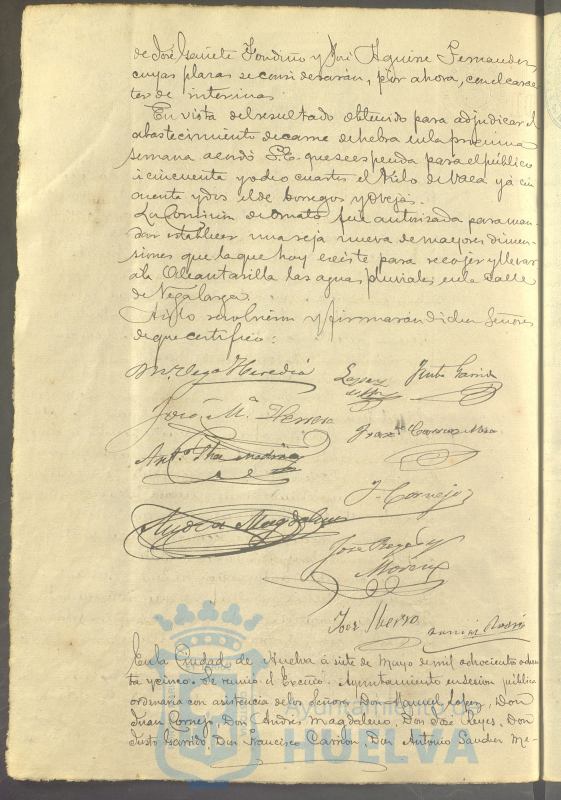 de José Gañete Fondiño y José Aguirre Fernandez,
cuyas plazas se considerarán, por ahora, con el carac
ter de interinas.
En vista del resultado obtenido para adjudicar el
abastecimiento de carne de hebra en la proxima
semana acordó S.E. que se espenda para el público
á cincuenta y ocho cuartos el Kilo de Vaca y á cin
cuenta y dos el de borregos y Ovejas.
La Comision de Ornato fue autorizada para man-
dar establecer una reja nueva de mayores dimen-
siones que la que hoy existe para recojer y llevar
á la Alcantarilla las aguas pluviales en la calle
de Vegalarga.
Así lo resolvieron y firmarán dichos Señores
de que certifico:
M. Vega Heredia
Lopez
Justo Garrido
José Mª Herrera
Franco Carrion
Anto
J. Cornejo
Andrés Magdaleno
José Reyes y
Moreno
José Ibarro
En la Ciudad de Huelva á siete de Mayo de mil ochociento ochen
ta y cinco. Se reunio el Excmo. Ayuntamiento en sesion pública
ordinaria con asistencia de los Señores Don Manuel Lopez, Don
Juan Cornejo, Don Andrés Magdaleno, Don José Reyes, Don
Justo Garrido, Don Francisco Carrion, Don Antonio Sanchez Me-
Ayuntamiento de
HUELVA